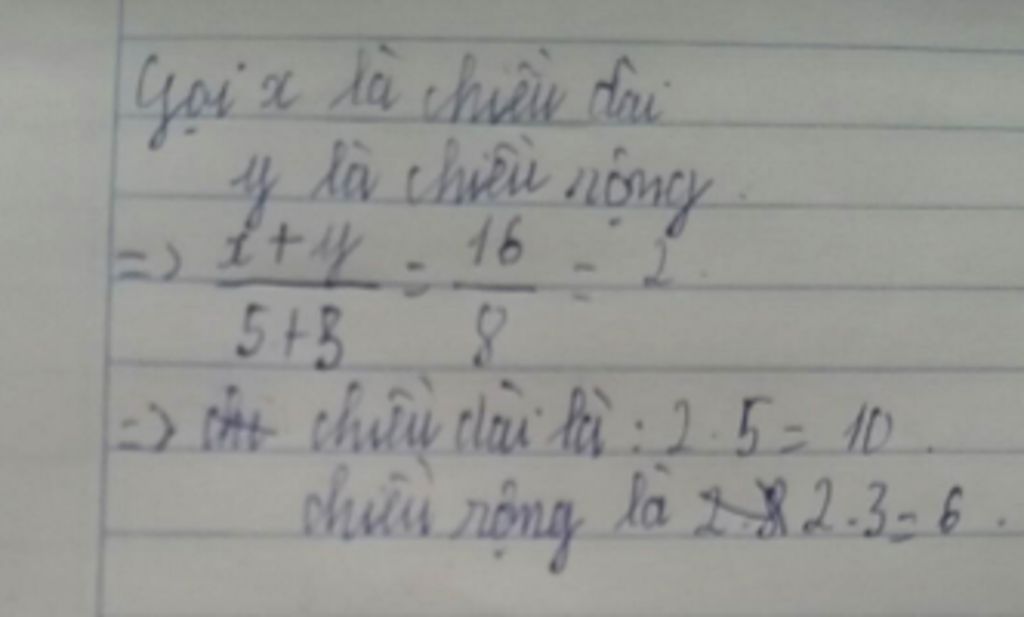 Gọi x là chiều dài
y là chiều rộng.
=> x + y / 5 + 3 = 16 / 8 = 2.
=> chiều dài là : 2 . 5 = 10.
chiều rộng là 2 . 3 = 6.